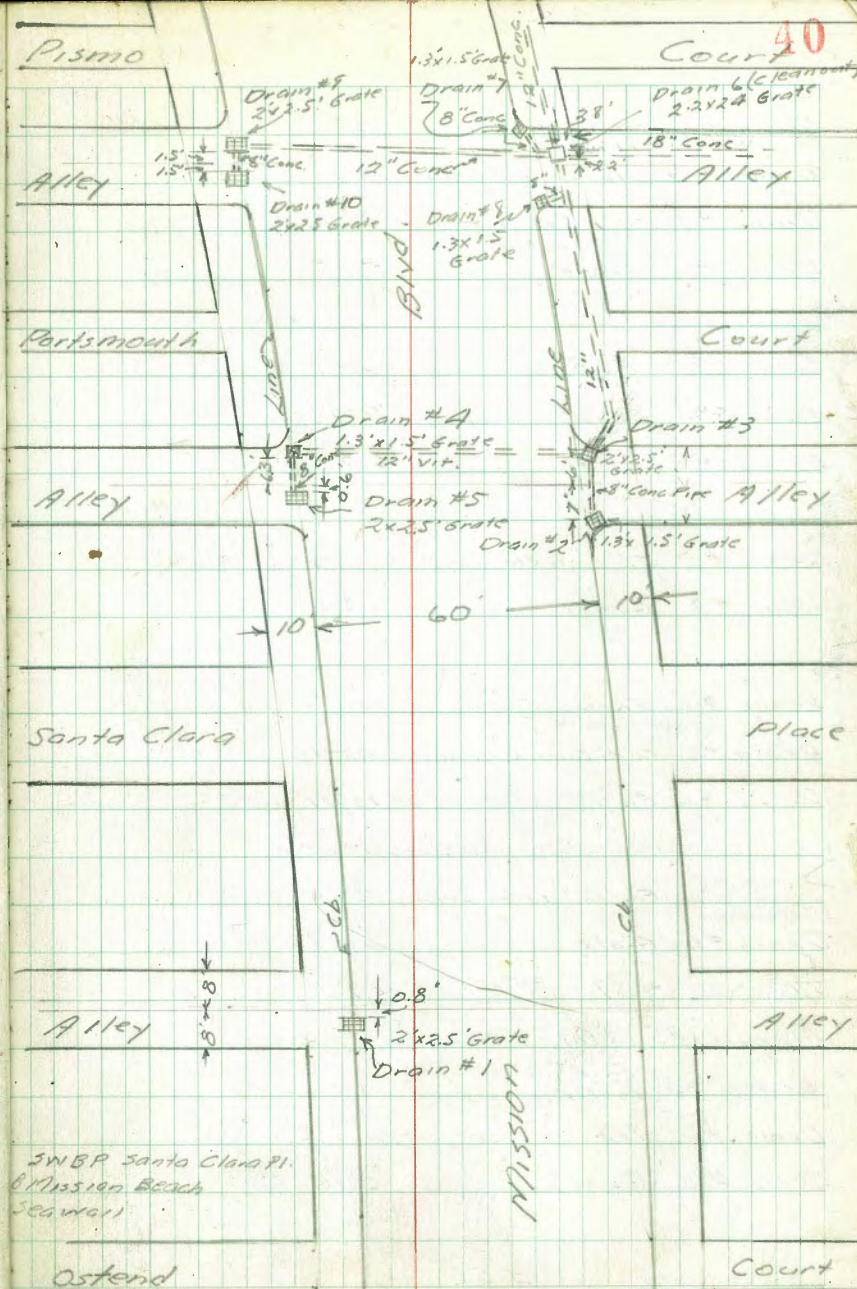 40
Pismo
Court
1.3'x1.5' Grate
12" Conc.
Drain #9
2'x2.5' Grate
Drain #7
Drain 6 (cleanout)
2.2x2.4 Grate
8" Conc
3.8'
18" Conc
1.5'
1.5'
8" Conc.
12" Conc
2.2'
Alley
Alley
Drain #10
2'x2.5 Grate
Drain #8
1.3x1.5
Grate
8"
Blvd.
Portsmouth
Court
Line
Line
12"
Drain #4
1.3'x1.5' Grate
12" Vit.
Drain #3
2'x2.5'
Grate
6.3'
8" Conc
0.6'
Alley
Drain #5
2x2.5' Grate
7'
6'
8" Conc Pipe
Alley
Drain #2
1.3x1.5' Grate
10'
60'
10'
Santa Clara
Place
Cb.
Cb
8'
8'
0.8'
Alley
2'x2.5' Grate
Alley
Drain #1
Mission
SWBP Santa Clara Pl.
& Mission Beach
Seawall
Ostend
Court